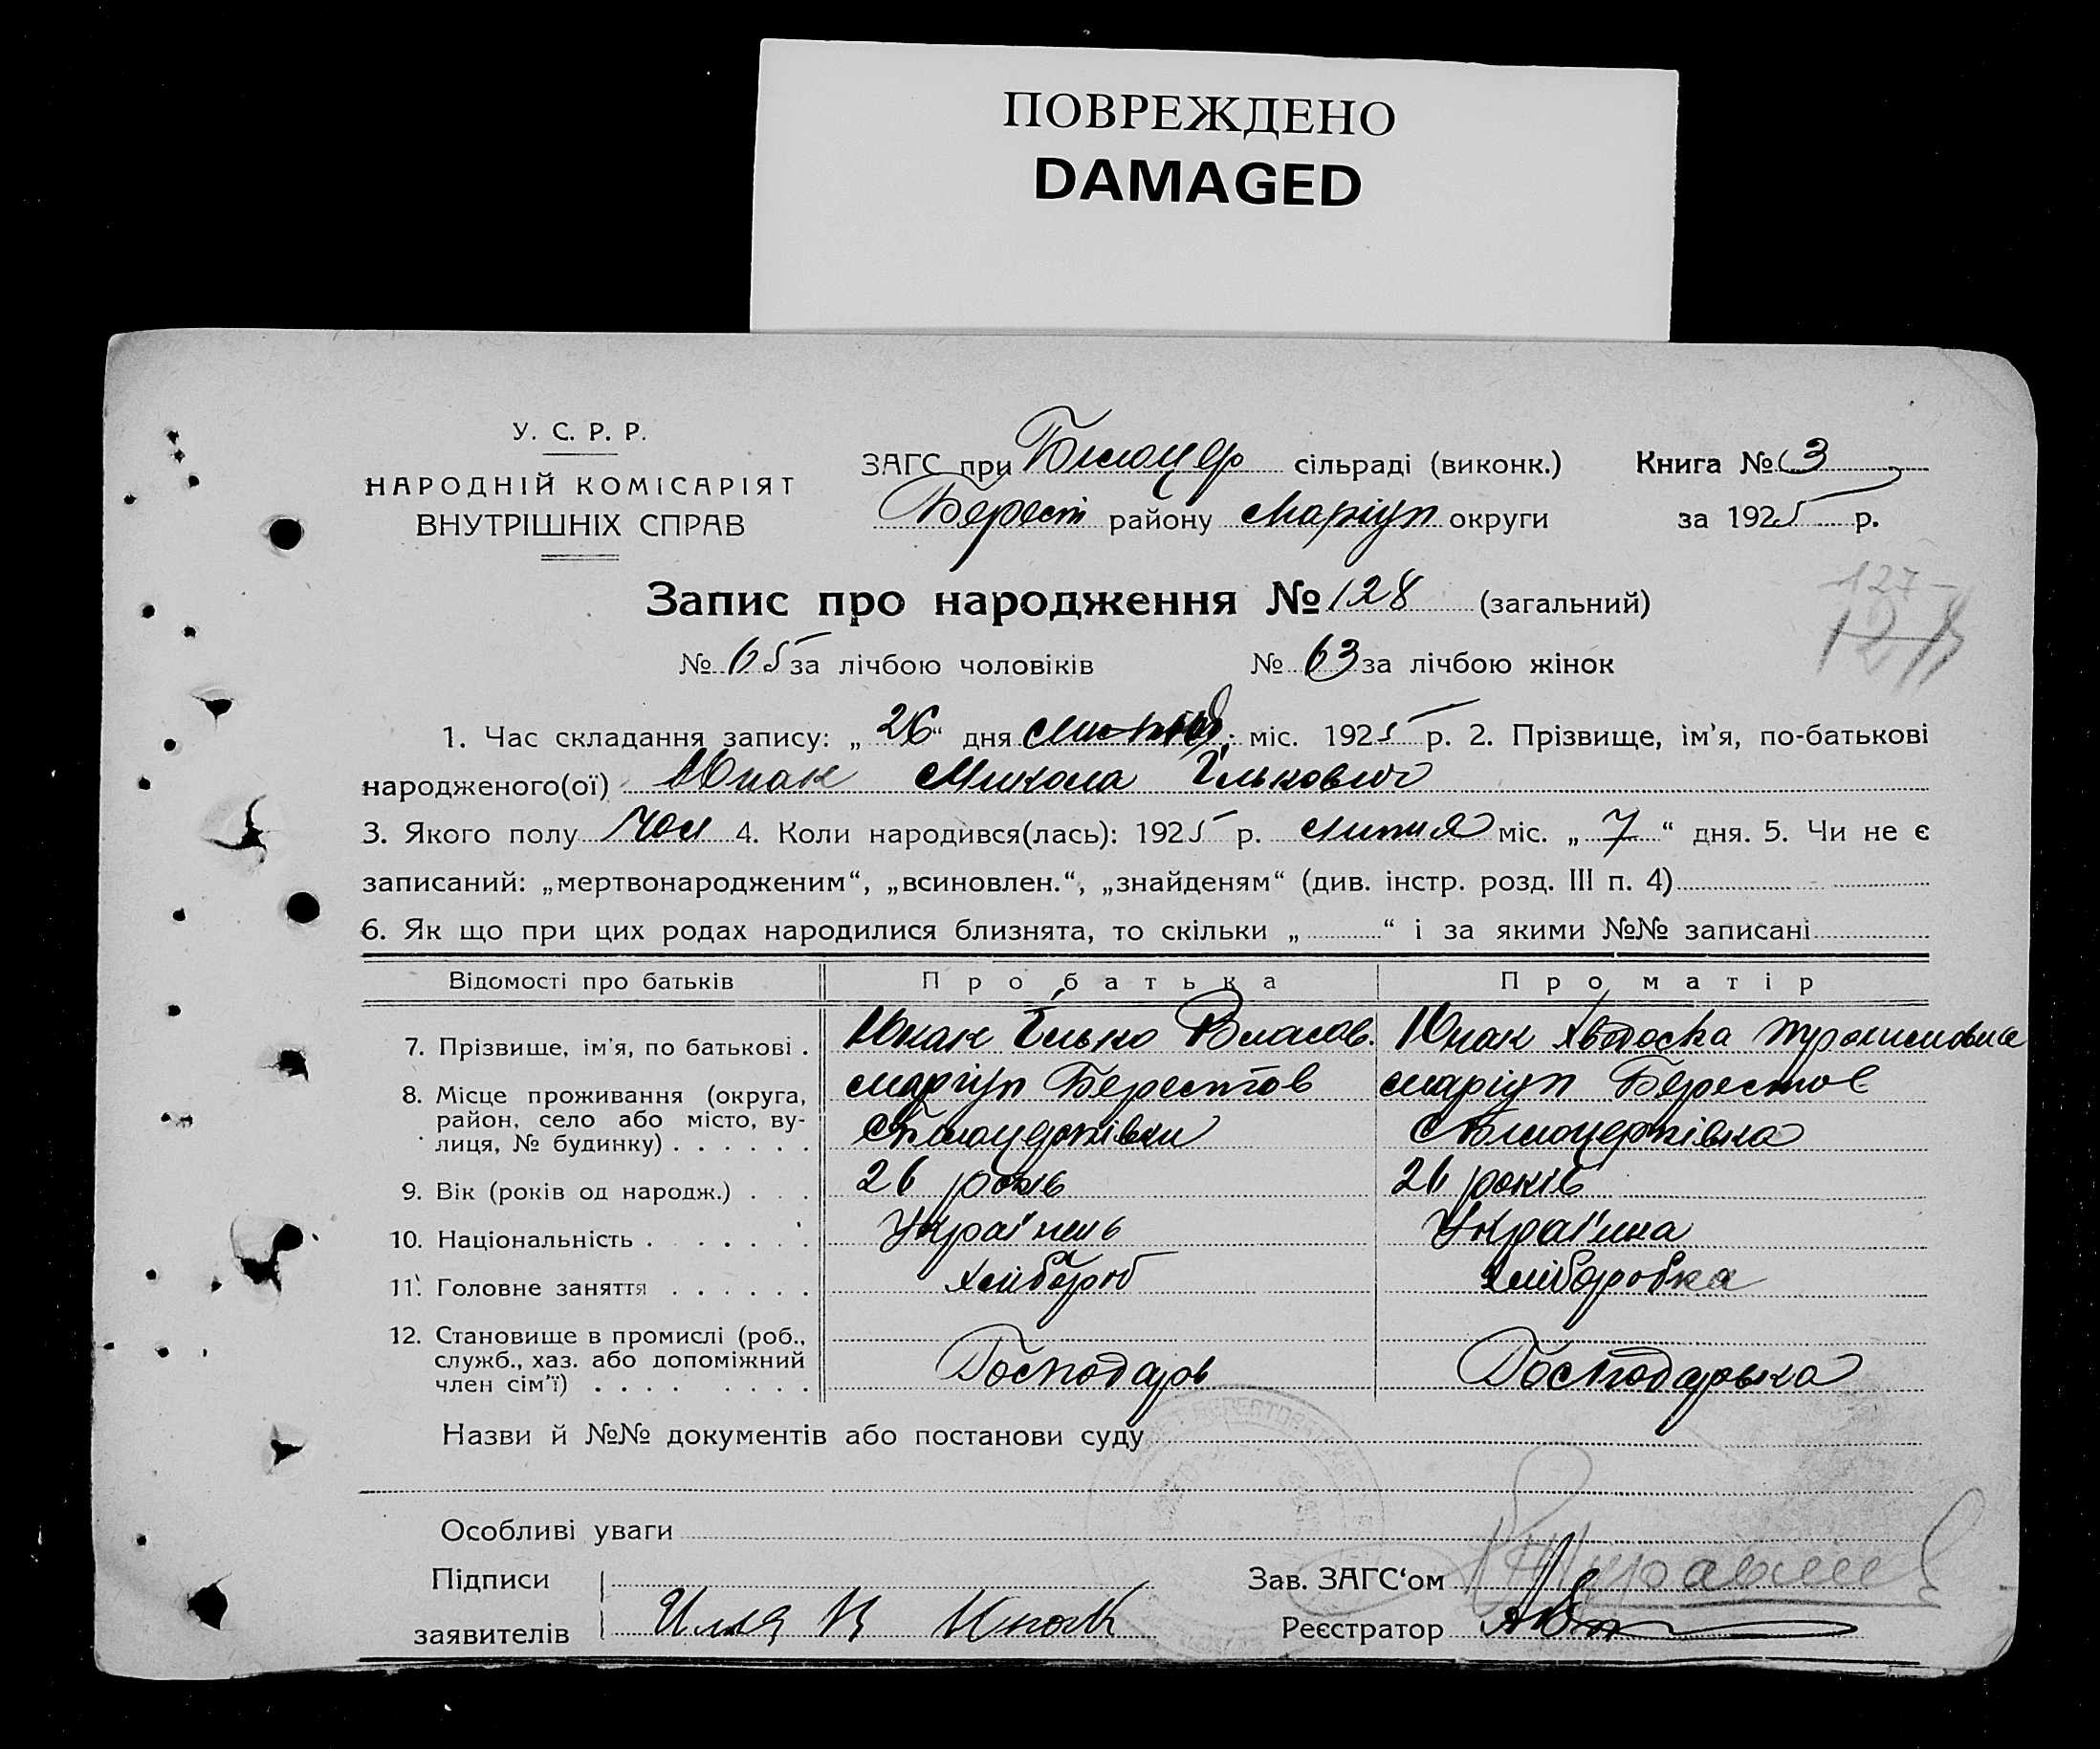 ПОВРЕЖДЕНО
DAMAGED
У. С. Р. Р.
НАРОДНІЙ КОМІСАРІЯТ
ВНУТРІШНІХ СПРАВ
ЗАГС при Білоцер сільраді (виконк.)
Берест району Маріуп округи
Книга № 3
за 1925 р.
Запис про народження № 128 (загальний)
127
128
№ 65 за лічбою чоловіків № 63 за лічбою жінок
1. Час складання запису: „ 26 “ дня міс. 1925 р. 2. Прізвище, ім'я, по-батькові
народженого(ої) Юнак Микола Ількович
3. Якого полу чол 4. Коли народився(лась): 1925 р. липня міс. „ 7 “ дня. 5. Чи не є
записаний: „мертвонародженим“, „всиновлен.“, „знайденям“ (див. інстр. розд. III п. 4)
6. Як що при цих родах народилися близнята, то скільки „ “ і за якими №№ записані
Відомості про батьків Про батька Про матір
7. Прізвище, ім'я, по батькові . Юнак Ілько Власов. Юнак Хвідоска
8. Місце проживання (округа, район, село або місто, вулиця, № будинку) . . . . . . Маріуп Берестов Маріуп Берестов
с Білоцерківки с Білоцерківка
9. Вік (років од народж.) . . . 26 років 26 років
10. Національність . . . . . . Українець Україїнка
11. Головне заняття . . . . . . хлібороб хліборобка
12. Становище в промислі (роб., служб., хаз. або допоміжний член сім'ї) . . . . . . . . Господарь Господарька
Назви й №№ документів або постанови суду
Особливі уваги
Підписи
заявителів Илья В Юнак
Зав. ЗАГС‘ом
Реєстратор